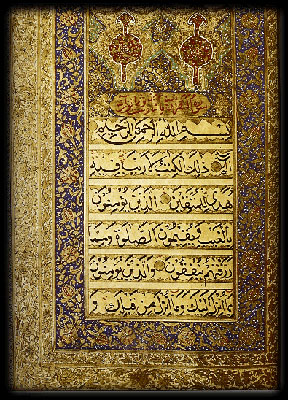 بسم الله الرحمن الرحيم
الم ذلك الكتب لا ريب فيه
هدى للمتقين الذين يؤمنون
بالغيب ويقيمون الصلوة ومما
رزقنهم ينفقون والذين يؤمنون
بما انزل اليك وما انزل من قبلك